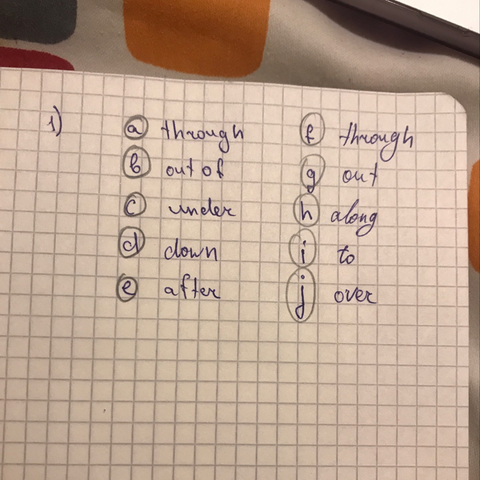 1) a through f through
b out of g out
c under h along
d down i to
e after j over